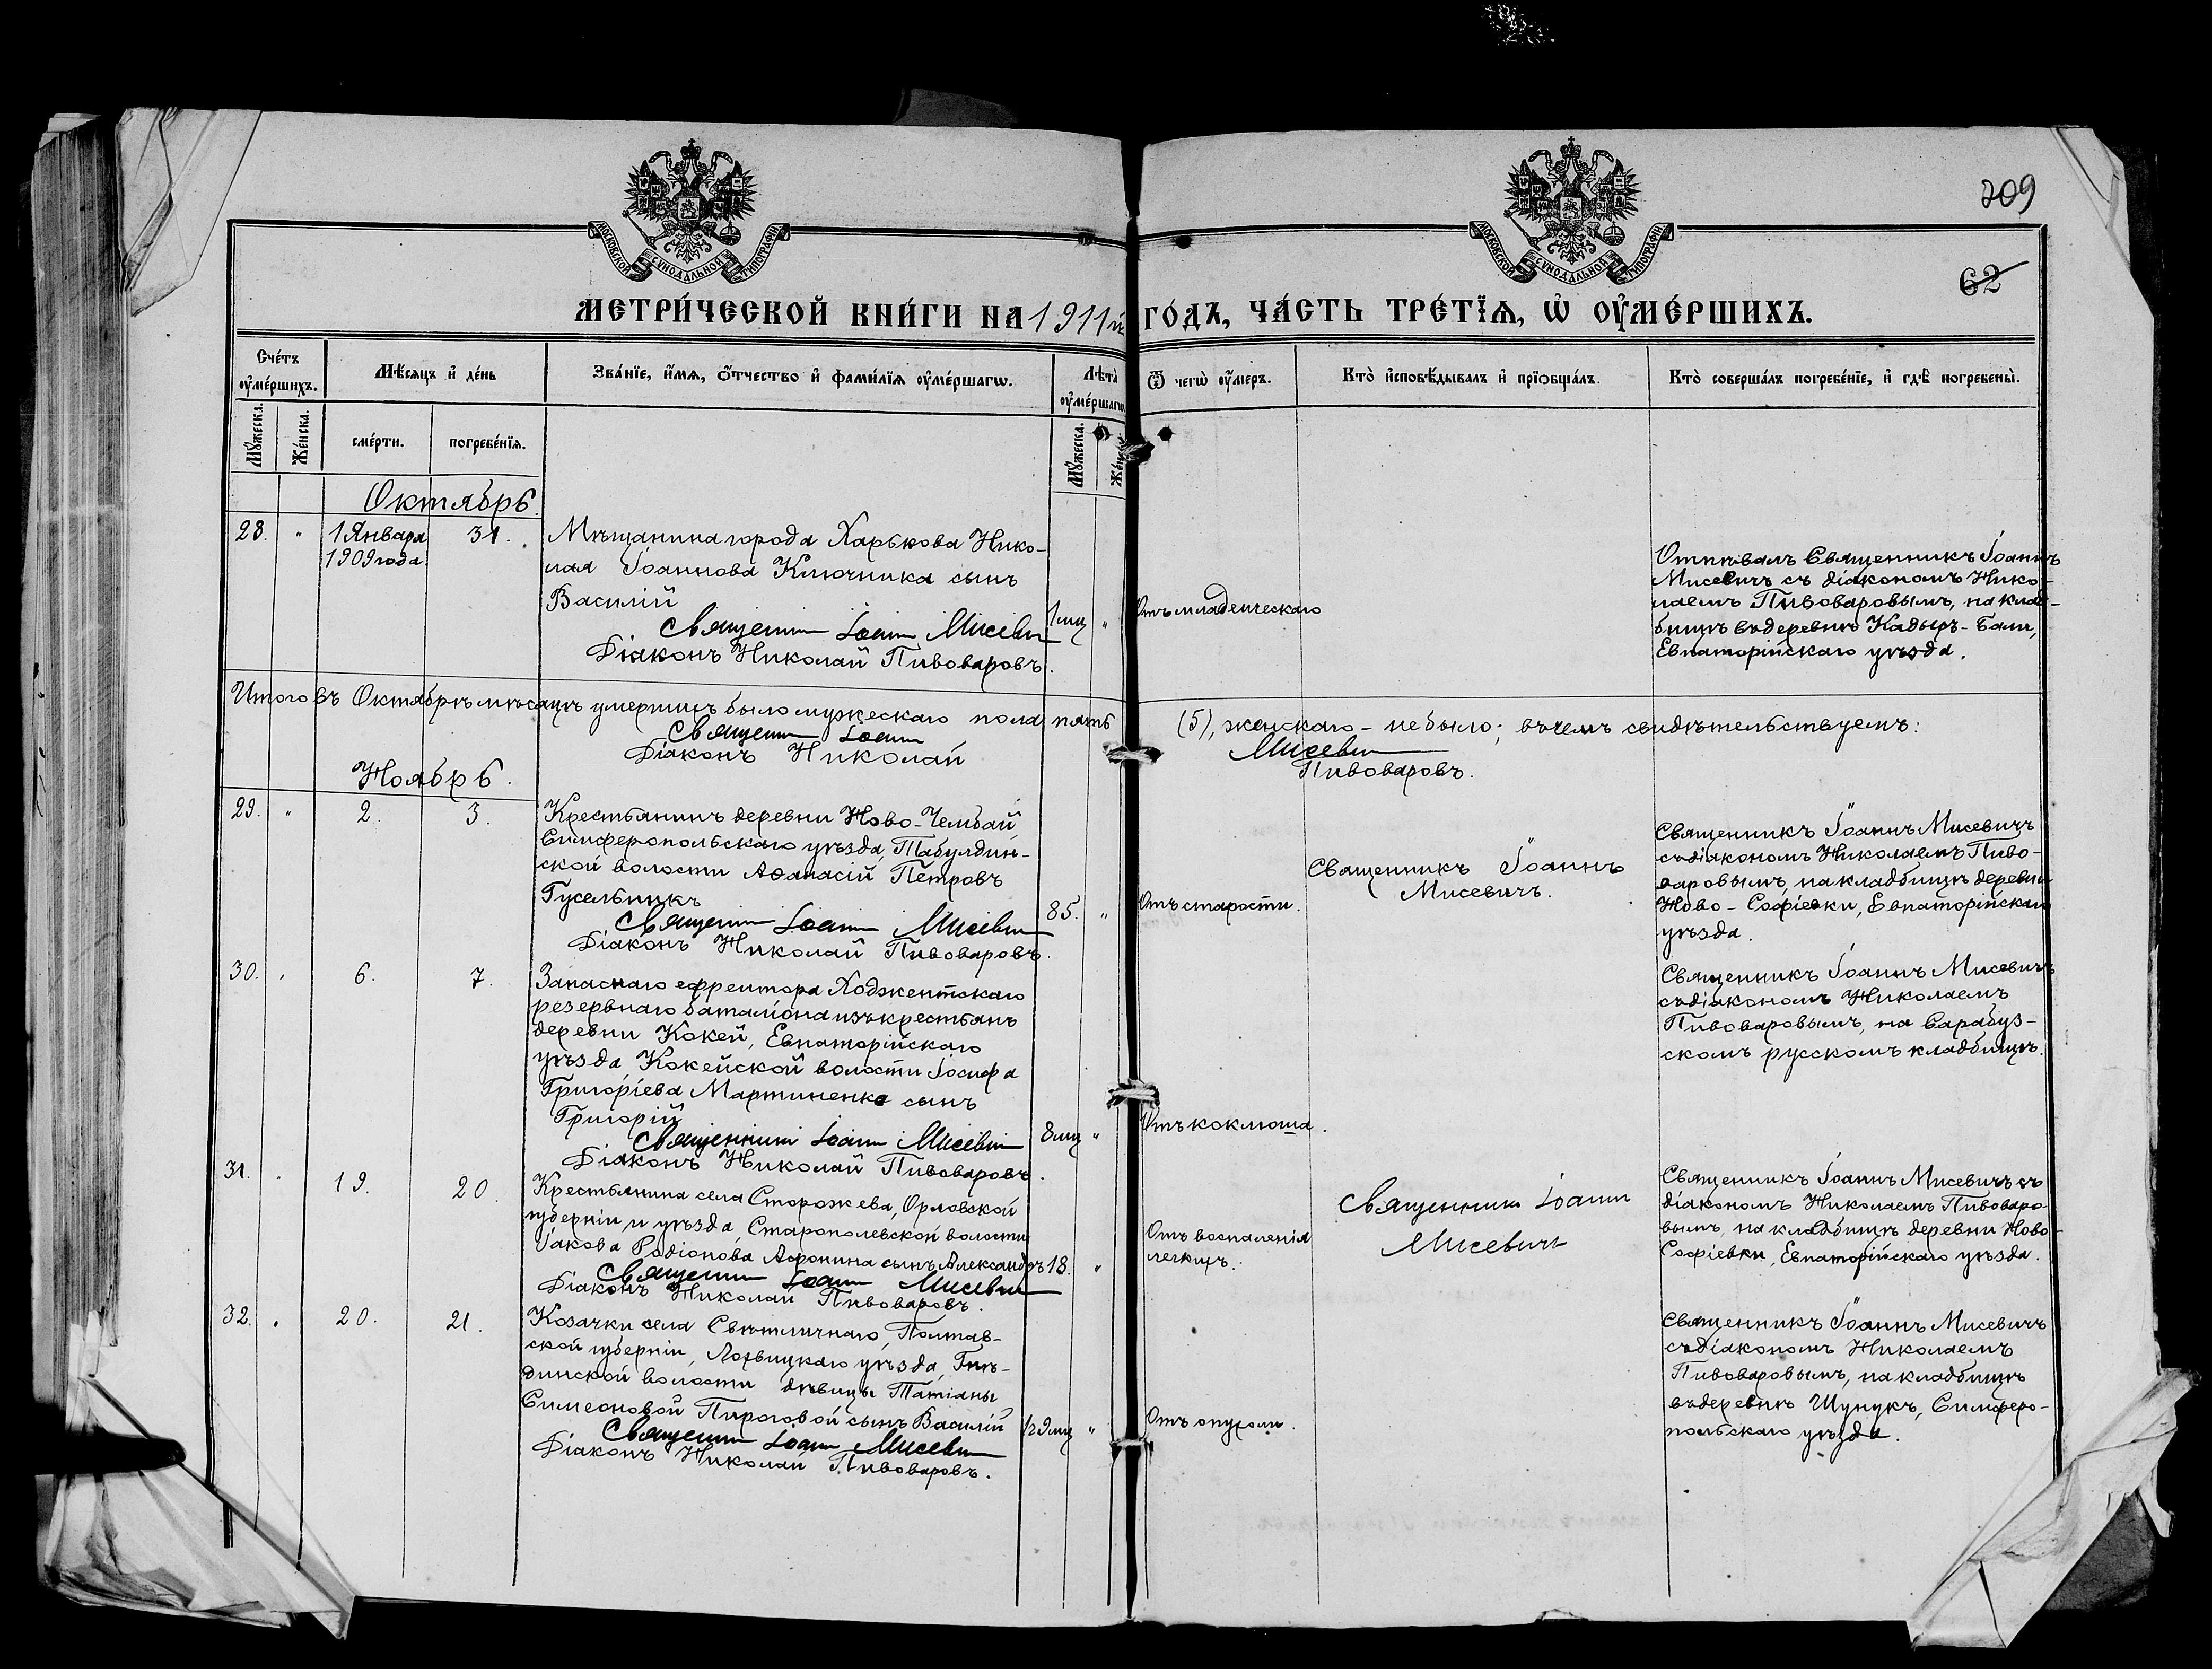 209
62
МОСКОВСКОЙ СѴНОДАЛЬНОЙ ТИПОГРАФІИ
МОСКОВСКОЙ СѴНОДАЛЬНОЙ ТИПОГРАФІИ
МЕТРИ́ЧЕСКОЙ КНИ́ГИ НА 1911й ГО́ДЪ, ЧА́СТЬ ТРЕ́ТЇѦ, Ѡ҆ ОУ҆МЕ́РШИХЪ.
Сче́тъ
оу҆ме́ршихъ.
Мѣ́сѧцъ и҆ де́нь
Зва́нїе, и҆́мѧ, о҆́тчество и҆ фами́лїѧ оу҆ме́ршагѡ.
Лѣ́та
оу҆ме́ршагѡ.
Ѿ чегѡ̀ оу҆́меръ.
Кто̀ и҆сповѣ́дывалъ и҆ прїобща́лъ.
Кто̀ соверша́лъ погребе́нїе, и҆ гдѣ̀ погребены̀.
Мꙋ́жеска.
Же́нска.
сме́рти.
погребе́нїѧ.
Мꙋ́жеска.
Же́нска.
Октябрь.
28. " 1 Января 31.
1909 года.
Мѣщанина города Харькова Нико-
лая Іоаннова Ключника сынъ
Василій
Священникъ Іоаннъ Мисевичъ
Діаконъ Николай Пивоваровъ.
1 мц "
Отъ младенческаго
Отпѣвалъ Священникъ Іоаннъ
Мисевичъ съ діакономъ Нико-
лаемъ Пивоваровымъ, на клад-
бищѣ въ деревнѣ Кадыръ-Бали,
Евпаторійскаго уѣзда.
Итого въ Октябрѣ мѣсяцѣ умершихъ было мужескаго пола пять (5), женскаго - не было; въ чемъ свидѣтельствуемъ:
Священникъ Іоаннъ Мисевичъ
Діаконъ Николай Пивоваровъ.
Ноябрь.
29. " 2. 3.
Крестьянинъ деревни Ново-Чембай
Симферопольскаго уѣзда, Табулдин-
ской волости Аѳанасій Петровъ
Гусельникъ
Священникъ Іоаннъ Мисевичъ
Діаконъ Николай Пивоваровъ.
85. "
Отъ старости.
Священникъ Іоаннъ
Мисевичъ.
Священникъ Іоаннъ Мисевичъ
съ діакономъ Николаемъ Пиво-
варовымъ, на кладбищѣ деревни
Ново-Софіевки, Евпаторійскаго
уѣзда.
30. " 6. 7.
Запаснаго ефрейтора Ходжентскаго
резервнаго баталіона изъ крестьянъ
деревни Кокей, Евпаторійскаго
уѣзда, Кокейской волости Іосифа
Григоріева Мартиненко сынъ
Григорій
Священникъ Іоаннъ Мисевичъ
Діаконъ Николай Пивоваровъ.
8 мц "
Отъ коклюша.
Священникъ Іоаннъ Мисевичъ
съ діакономъ Николаемъ
Пивоваровымъ, на Сарабуз-
скомъ русскомъ кладбищѣ.
31. " 19. 20.
Крестьянина села Сторожева, Орловской
губерніи и уѣзда, Старополевской волости
Іакова Родіонова Аѳонина сынъ Александръ
Священникъ Іоаннъ Мисевичъ
Діаконъ Николай Пивоваровъ.
18. "
Отъ воспаленія
легкихъ.
Священникъ Іоаннъ
Мисевичъ
Священникъ Іоаннъ Мисевичъ съ
діакономъ Николаемъ Пивоваро-
вымъ, на кладбищѣ деревни Ново-
Софіевки, Евпаторійскаго уѣзда.
32. " 20. 21.
Козачки села Свѣтличнаго, Полтав-
ской губерніи, Лохвицкаго уѣзда, Гнѣ-
динской волости дѣвицы Татіаны
Симеоновой Пироговой сынъ Василій
Священникъ Іоаннъ Мисевичъ
Діаконъ Николай Пивоваровъ.
"
Отъ опухоли.
Священникъ Іоаннъ Мисевичъ
съ діакономъ Николаемъ
Пивоваровымъ, на кладбищѣ
въ деревнѣ Шунукъ, Симферо-
польскаго уѣзда.